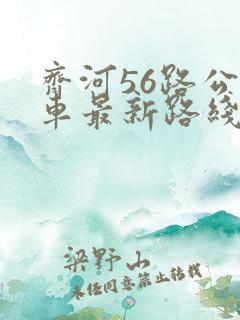 齐河56路公
车最新路线
梁野山
未经同意禁止转载